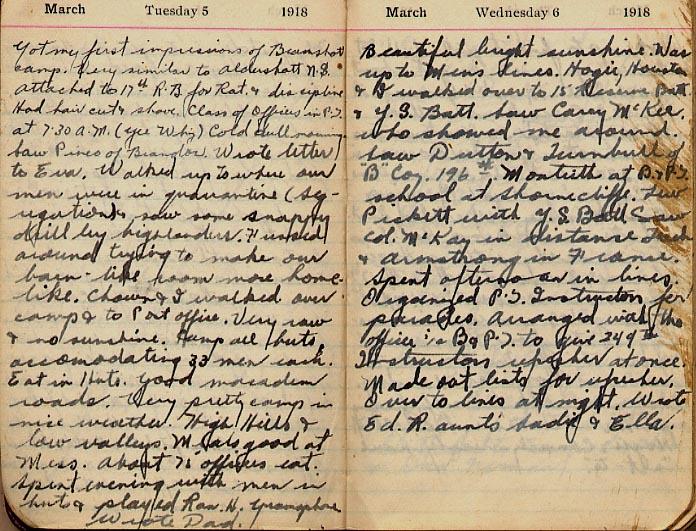 March Tuesday 5 1918
Got my first impressions of Bramshott
camp. Very similar to Aldershott N.S.
Attached to 17th R.B for Rat. & discipline
Had hair cut & shave. Class of Officers in P.T.
at 7:30 A.M. Cold dull morning
Saw Pines of Brandon. Wrote letter
to Eva. Walked up to where our
men were in quarantine (seg-
regation) & saw some snappy
drill by highlanders. Fussed
around trying to make our
barn-like room more home-
like. Chown & I walked over
camp & to Post office. Very raw
& no sunshine. Camp all huts
accomodating 33 men each.
Eat in Huts. Good macadem
roads. Very pretty camp in
nice weather. High Hills &
low valleys. Meals good at
Mess. About 75 officers eat.
Spent evening with men in
huts & played Ran. H. Gramaphone
Wrote Dad.
March Wednesday 6 1918
Beautiful bright sunshine. Was
up to Men's Lines. Hogie, Houston
& I walked over to 15 Reserve Batt
& Y.S. Batt. Saw Carey McKee.
who showed me around.
Saw Dutton & Turnbull of
"B" Coy. 196th. Monteith at B & P.T.
school at Shorncliffe. Saw
Pickett with Y.S Batt Saw
Col. McKay in distance
& Armstrong in France.
Spent afternoon in lines.
Organized P.T. Instructors for
parades. Arranged with the
officer i/c B & P.T. to give 249th
Instructors refresher at once.
Made out lists for refresher.
Over to lines at night. Wrote
Ed. R. aunts Sadie & Ella.